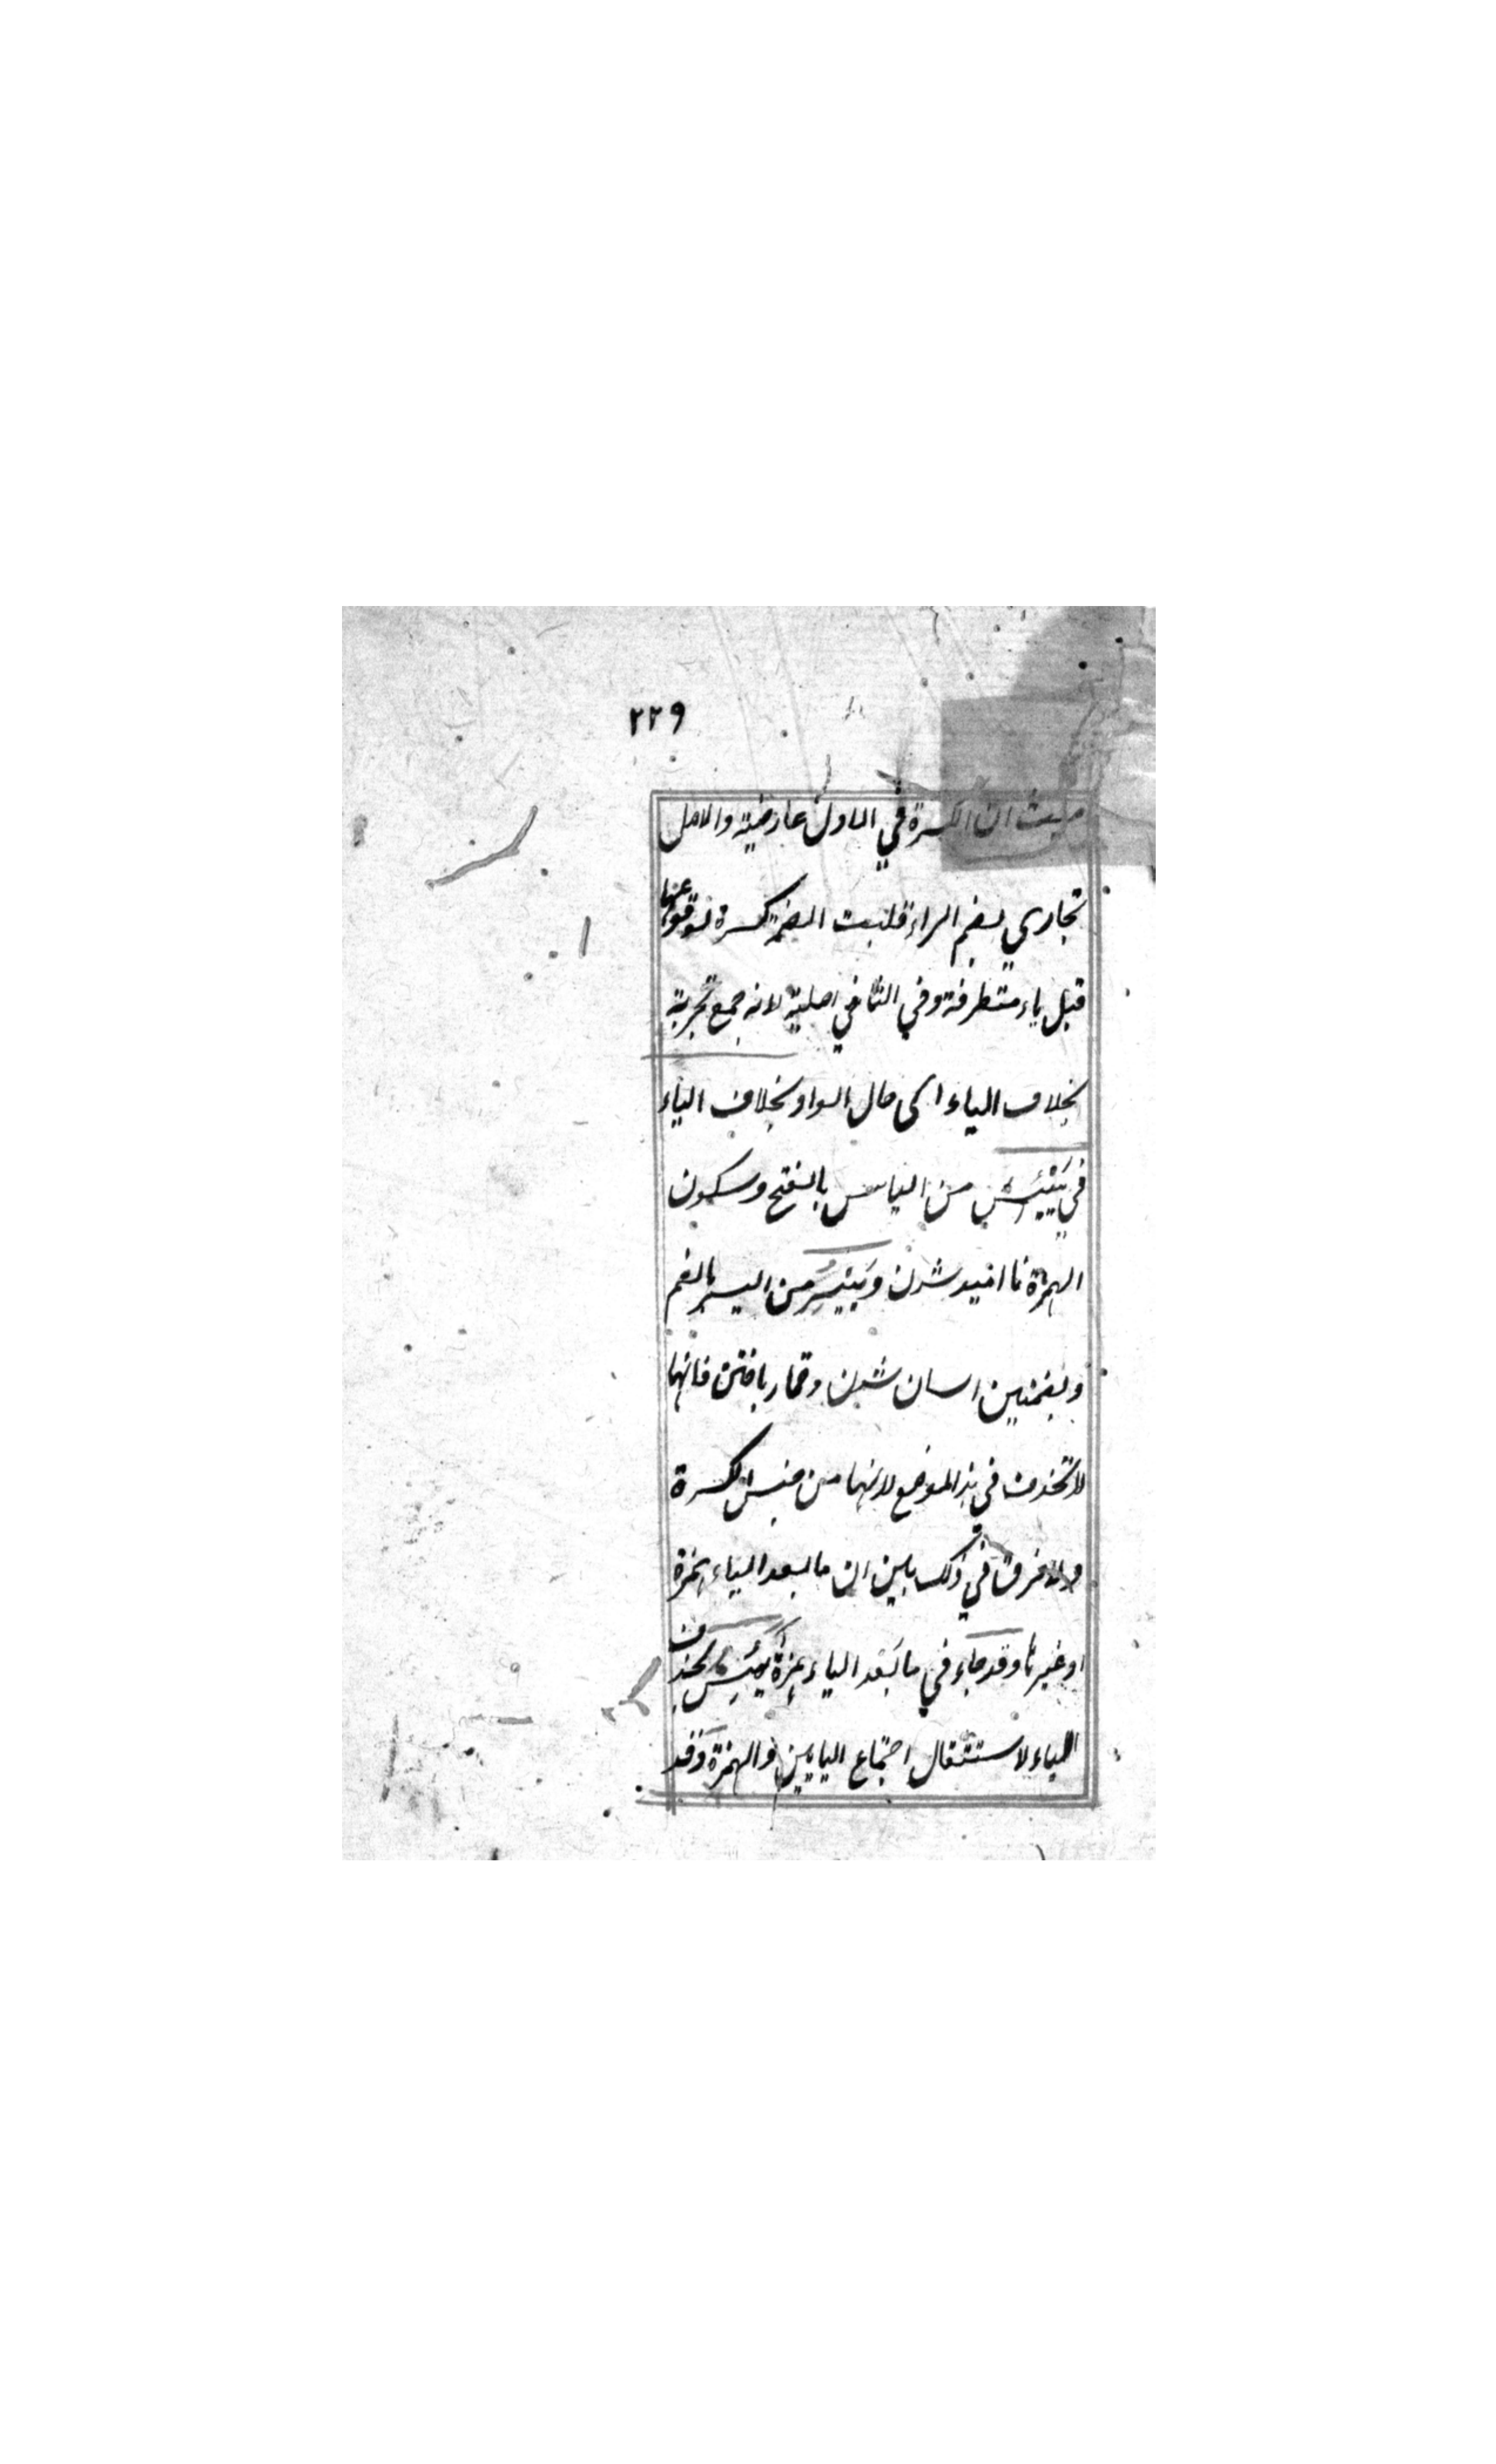 ٢٢٩
حيث ان الكسرة في الاول عارضية والاصل
تجاري بضم الراء قلبت الضمة كسرة لوقوعها
قبل ياء متطرفة وفي الثاني اصلية لانه جمع تجربة
بخلاف الياء اى حال الواو بخلاف الياء
في يَيْئِسُ من الياس بالفتح وسكون
الهمزة نا اميد شدن ويَيْسِرُ من اليسر بالضم
وبضمتين اسان شدن وقمار باختن فانها
لا تحذف في هذا الموضع لانها من جنس الكسرة
ولا فرق في ذلك بين ان ما بعد الياء همزة
او غيرها وقد جاء في ما بَعد الياء همزةٌ يَئِسُ بحذف
الياء لاستثقال اجتماع اليايين والهمزة وَقد